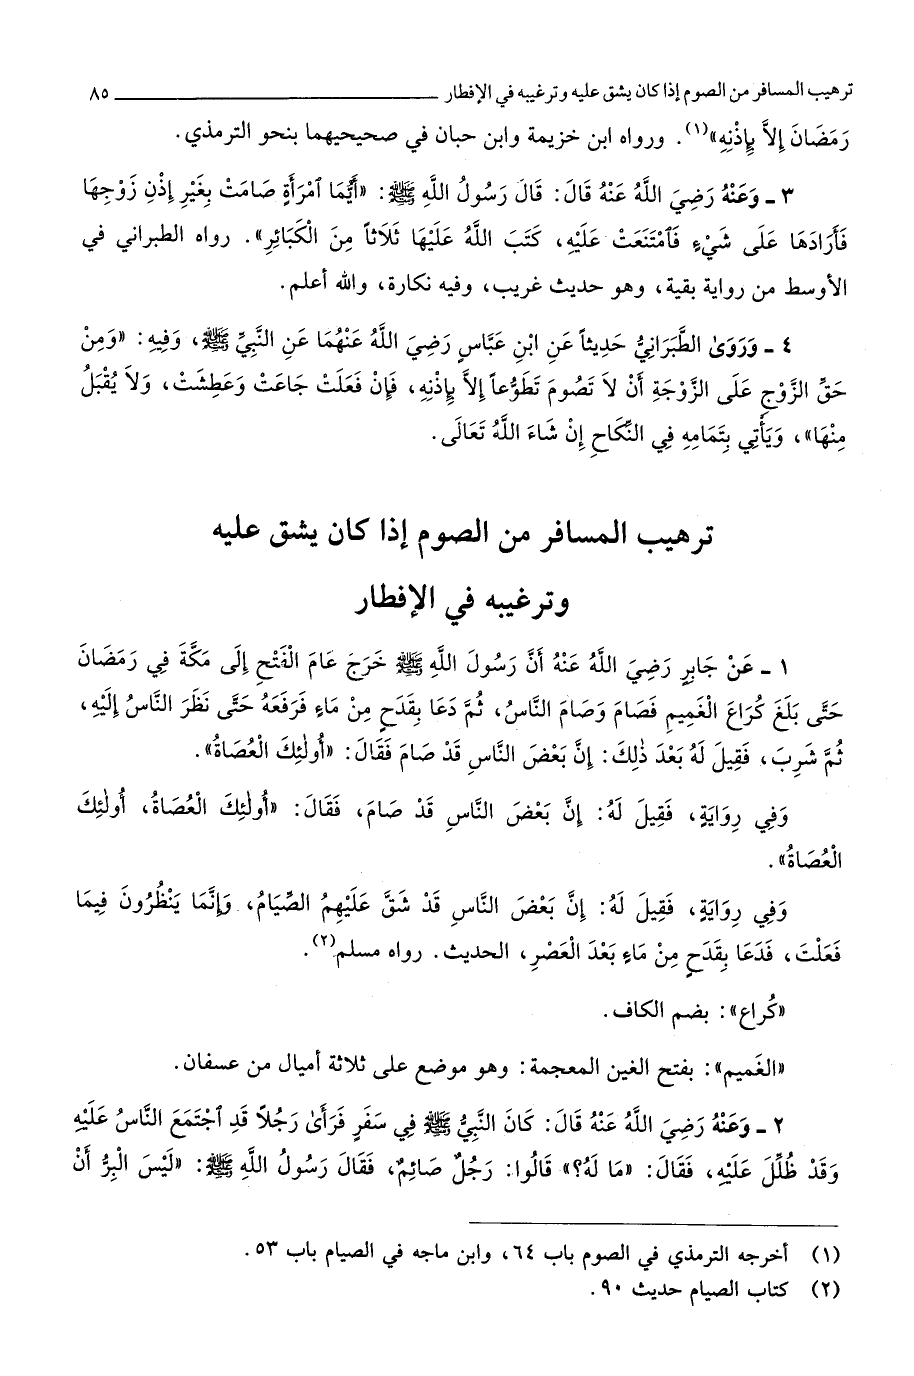 ترهيب المسافر من الصوم إذا كان يشق عليه وترغيبه في الإفطار ــــــــــــــــــ ٨٥
رَمَضَانَ إِلاَّ بِإِذْنِهِ»(١). ورواه ابن خزيمة وابن حبان في صحيحيهما بنحو الترمذي.
٣ ـ وَعَنْهُ رَضِيَ اللَّهُ عَنْهُ قَالَ: قَالَ رَسُولُ اللَّهِ ﷺ: «أَيُّمَا ٱمْرَأَةٍ صَامَتْ بِغَيْرِ إِذْنِ زَوْجِهَا
فَأَرَادَهَا عَلَى شَيْءٍ فَٱمْتَنَعَتْ عَلَيْهِ، كَتَبَ اللَّهُ عَلَيْهَا ثَلَاثاً مِنَ الْكَبَائِرِ». رواه الطبراني في
الأوسط من رواية بقية، وهو حديث غريب، وفيه نكارة، والله أعلم.
٤ ـ وَرَوَىٰ الطَّبَرَانِيُّ حَدِيثاً عَنِ ابْنِ عَبَّاسٍ رَضِيَ اللَّهُ عَنْهُمَا عَنِ النَّبِيِّ ﷺ، وَفِيهِ: «وَمِنْ
حَقِّ الزَّوْجِ عَلَى الزَّوْجَةِ أَنْ لاَ تَصُومَ تَطَوُّعاً إِلاَّ بِإِذْنِهِ، فَإِنْ فَعَلَتْ جَاعَتْ وَعَطِشَتْ، وَلاَ يُقْبَلُ
مِنْهَا»، وَيَأْتِي بِتَمَامِهِ فِي النِّكَاحِ إِنْ شَاءَ اللَّهُ تَعَالَى.
ترهيب المسافر من الصوم إذا كان يشق عليه
وترغيبه في الإفطار
١ ـ عَنْ جَابِرٍ رَضِيَ اللَّهُ عَنْهُ أَنَّ رَسُولَ اللَّهِ ﷺ خَرَجَ عَامَ الْفَتْحِ إِلَى مَكَّةَ فِي رَمَضَانَ
حَتَّى بَلَغَ كُرَاعَ الْغَمِيمِ فَصَامَ وَصَامَ النَّاسُ، ثُمَّ دَعَا بِقَدَحٍ مِنْ مَاءٍ فَرَفَعَهُ حَتَّى نَظَرَ النَّاسُ إِلَيْهِ،
ثُمَّ شَرِبَ، فَقِيلَ لَهُ بَعْدَ ذٰلِكَ: إِنَّ بَعْضَ النَّاسِ قَدْ صَامَ فَقَالَ: «أُولٰئِكَ الْعُصَاةُ».
وَفِي رِوَايَةٍ، فَقِيلَ لَهُ: إِنَّ بَعْضَ النَّاسِ قَدْ صَامَ، فَقَالَ: «أُولٰئِكَ الْعُصَاةُ، أُولٰئِكَ
الْعُصَاةُ».
وَفِي رِوَايَةٍ، فَقِيلَ لَهُ: إِنَّ بَعْضَ النَّاسِ قَدْ شَقَّ عَلَيْهِمُ الصِّيَامُ، وَإِنَّمَا يَنْظُرُونَ فِيمَا
فَعَلْتَ، فَدَعَا بِقَدَحٍ مِنْ مَاءٍ بَعْدَ الْعَصْرِ، الحديث. رواه مسلم(٢).
«كُراع»: بضم الكاف.
«الغَميم»: بفتح الغين المعجمة: وهو موضع على ثلاثة أميال من عسفان.
٢ ـ وَعَنْهُ رَضِيَ اللَّهُ عَنْهُ قَالَ: كَانَ النَّبِيُّ ﷺ فِي سَفَرٍ فَرَأَىٰ رَجُلاً قَدِ ٱجْتَمَعَ النَّاسُ عَلَيْهِ
وَقَدْ ظُلِّلَ عَلَيْهِ، فَقَالَ: «مَا لَهُ؟» قَالُوا: رَجُلٌ صَائِمٌ، فَقَالَ رَسُولُ اللَّهِ ﷺ: «لَيْسَ الْبِرُّ أَنْ
(١) أخرجه الترمذي في الصوم باب ٦٤، وابن ماجه في الصيام باب ٥٣.
(٢) كتاب الصيام حديث ٩٠.